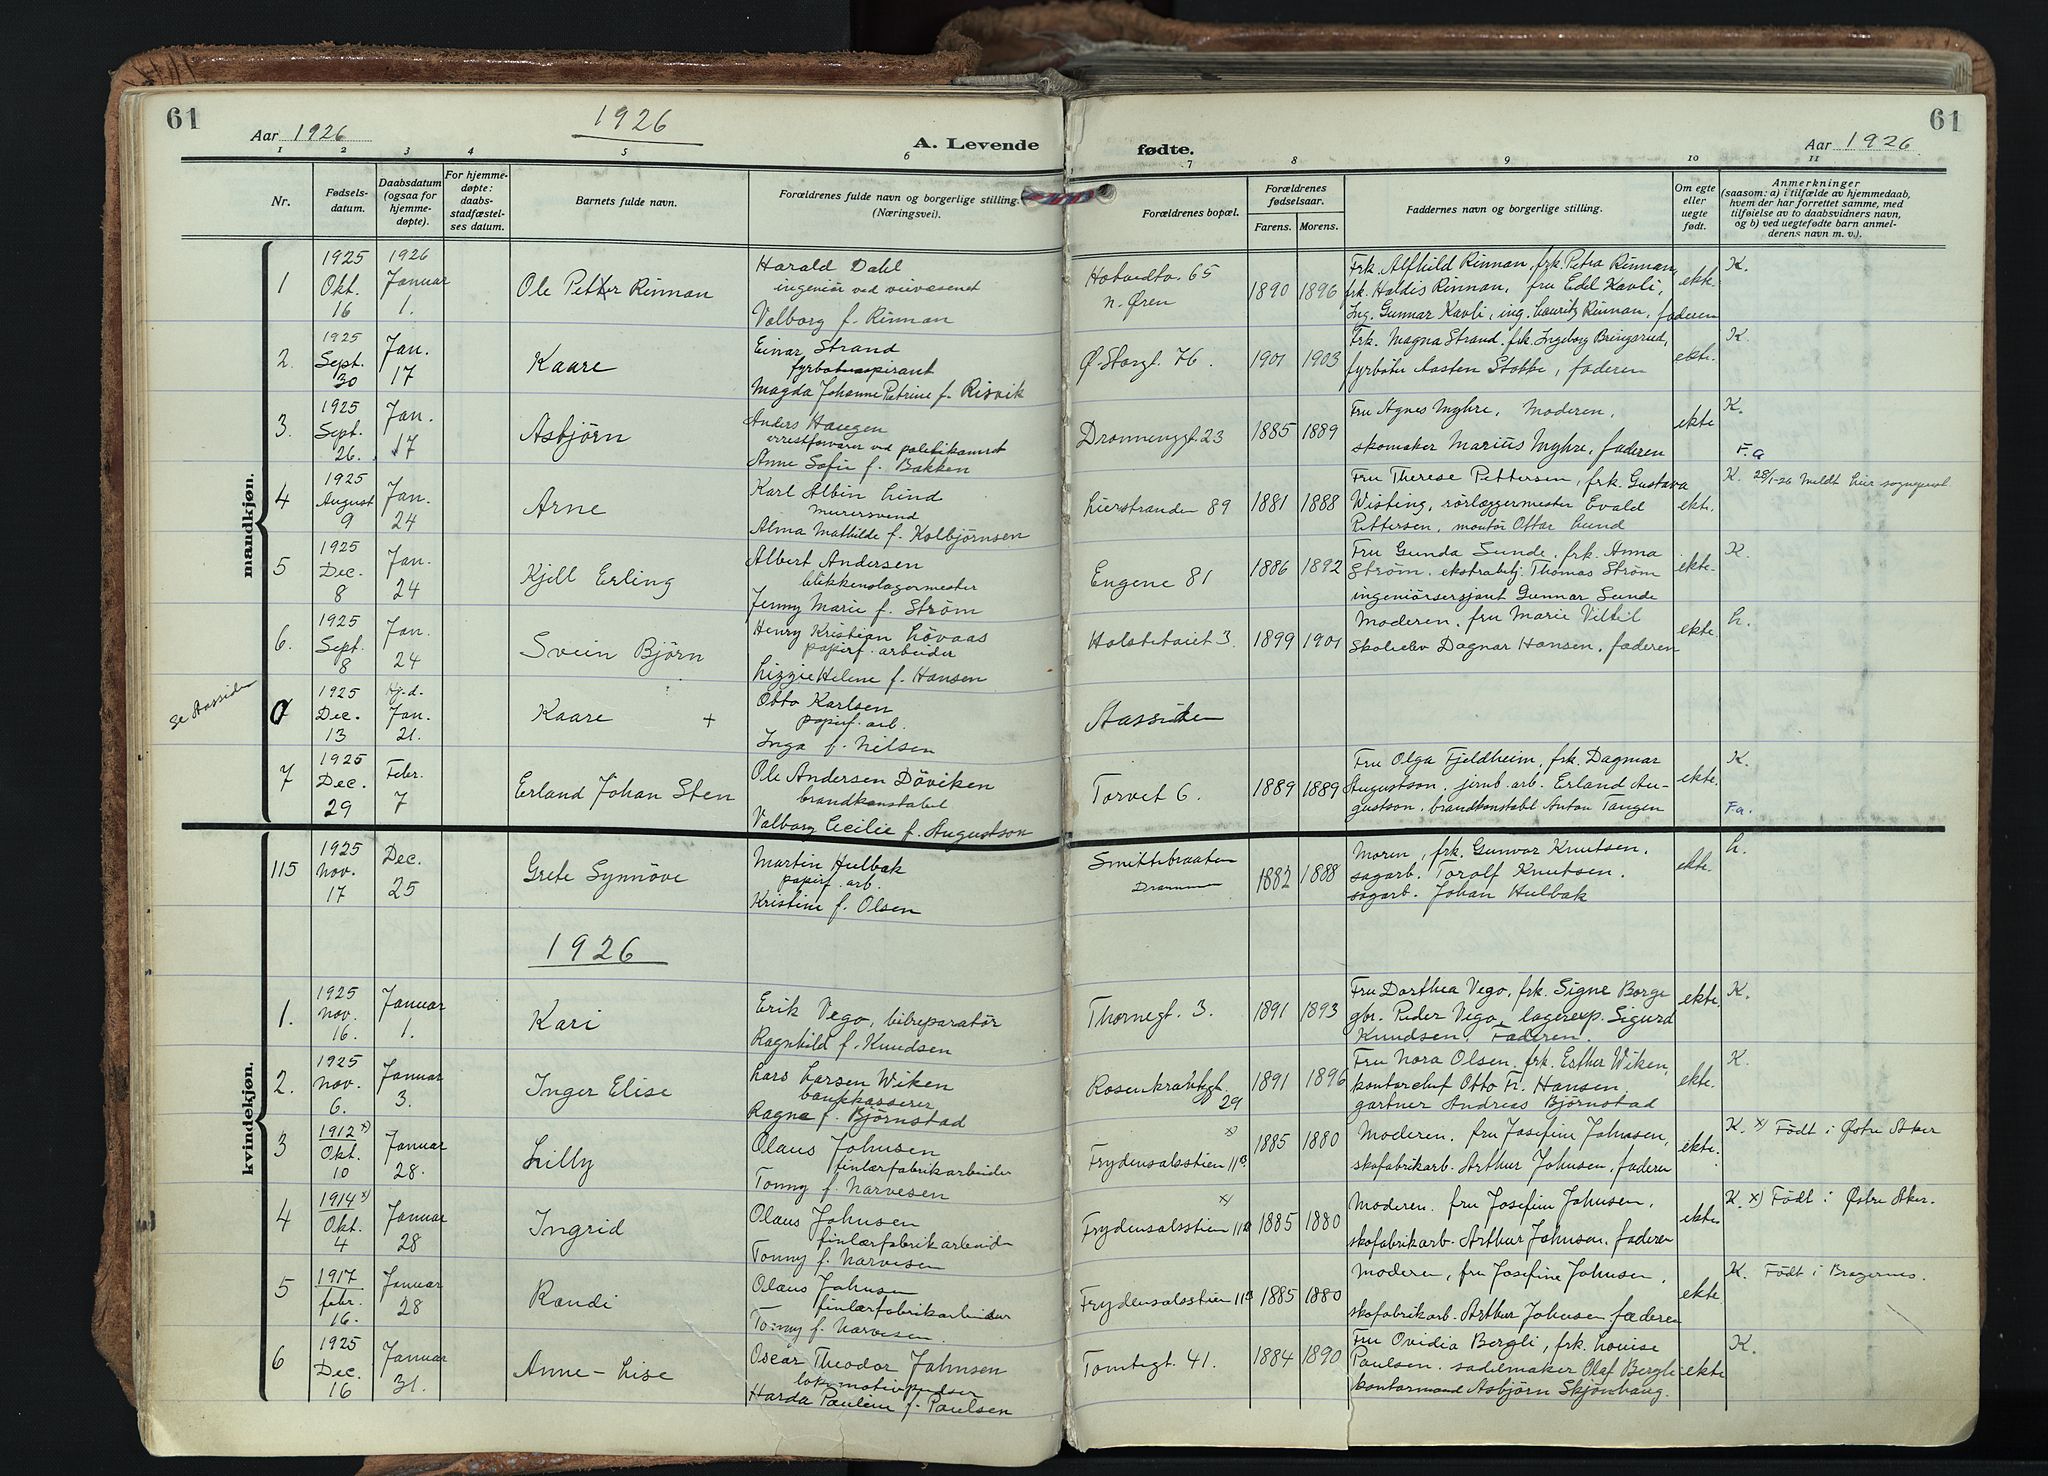 61
Aar 1926
1926
A. Levende
fødte.
Aar 1926
61
1 2 3 4 5 6 7 8 9 10 11
Nr.
Fødsels-
datum.
Daabsdatum
(ogsaa for
hjemme-
døpte).
For hjemme-
døpte:
daabs-
stadfæstel-
ses datum.
Barnets fulde navn.
Forældrenes fulde navn og borgerlige stilling.
(Næringsvei).
Forældrenes bopæl.
Forældrenes
fødselsaar.
Farens. Morens.
Faddernes navn og borgerlige stilling.
Om egte
eller
uegte
født.
Anmerkninger
(saasom: a) i tilfælde av hjemmedaab,
hvem der har forrettet samme, med
tilføielse av to daabsvidners navn,
og b) ved uegtefødte barn anmel-
derens navn m. v.).
mandkjøn.
1
1925
Okt.
16
1926
Januar
1.
Ole Petter Rinnan
Harald Dahl
ingeniør ved veivæsenet
Valborg f. Rinnan
Hotvedtv. 65
n. Øren
1890 1896
Frk. Alfhild Rinnan, frk. Petra Rinnan,
frk. Haldis Rinnan, fru Edel Kavli,
Ing. Gunnar Kavli, ing. Lauritz Rinnan, faderen
ekte.
K.
2.
1925
Sept.
30
Jan.
17
Kaare
Einar Strand
fyrbøteraspirant
Magda Johanne Petrine f. Risvik
Ø. Storgt. 76.
1901 1903
Frk. Magna Strand, frk. Ingeborg Bringsrud,
fyrbøter Aasten Stobbe, faderen
ekte.
K.
3.
1925
Sept.
26.
Jan.
17
Asbjørn
Anders Haugen
arrestforvarer ved politikamret
Anne Sofie f. Bakken
Dronninggt. 23
1885 1889
Fru Agnes Myhre, Moderen,
skomaker Marius Myhre, faderen
ekte
K.
F.a
4
1925
August
9
Jan.
24
Arne
Karl Albin Lind
murersvend
Alma Mathilde f. Kolbjørnsen
Lierstranden 89
1881 1888
Fru Therese Pettersen, frk. Gustava
Wisting, rørlæggermester Evald
Pettersen, montør Ottar Lund
ekte.
K. 28/1-26 Meldt Lier sogneprest
5
1925
Dec.
8
Jan.
24
Kjell Erling
Albert Andersen
blikkenslagermester
Jenny Marie f. Strøm
Engene 81
1886 1892
Fru Gunda Sunde, frk. Anna
Strøm, ekstrabtj. Thomas Strøm
ingeniørsersjant Gunnar Sunde
ekte.
K.
6.
1925
Sept.
8
Jan.
24
Svein Bjørn
Henry Kristian Løvaas
papirf. arbeider
Lizzie Helene f. Hansen
Holstetaiet 3
1899 1901
Moderen, fru Marie Viltil
Skoleelev Dagnar Hansen, faderen
ekte.
L.
se Aassiden
0
1925
Dec.
13
Hj.d.
Jan.
21.
Kaare +
Otto Karlsen
papirf. arb.
Inga f. Nilsen
Aassiden
7
1925
Dec.
29
Febr.
7
Erland Johan Sten
Ole Andersen Døviken
brandkonstabel
Valborg Cecilie f. Augustson
Torvet 6.
1889 1889
Fru Olga Fjeldheim, frk. Dagmar
Augustson, jernb. arb. Erland Au-
gustson, brandkonstabl Anton Tangen
ekte.
K.
Fa.
kvindekjøn.
115
1925
Nov.
17
Dec.
25
Grete Synnøve
Martin Hulbak
papirf. arb.
Kristine f. Olsen
Smittebraaten
Drammen
1882 1888
Moren, frk. Gunvor Knutsen,
sagarb. Torolf Knutsen,
sagarb. Johan Hulbak
ekte.
L.
1926
1.
1925
Nov.
16.
Januar
1.
Kari
Erik Vego, bilreparatør
Ragnhild f. Knudsen
Thornegt. 3.
1891 1893
Fru Dorthea Vego, frk. Signe Borge
gbr. Peder Vego, lagerexp. Sigurd
Knudsen, Faderen.
ekte
K.
2.
1925
Nov.
6.
Januar
3.
Inger Elise
Lars Larsen Wiken
bankkasserer
Ragna f. Bjørnstad
Rosenkrantzgt.
29
1891 1896
Fru Nora Olsen, frk. Esther Wiken,
kontorchef Otto Fr. Hansen
gartner Andreas Bjørnstad
ekte.
K.
3
1912 x)
Okt.
10
Januar
28.
Lilly
Olaus Johnsen
finlærfabrikarbeider
Tonny f. Narvesen
x)
Frydensalsstien 11B
1885 1880
Moderen, fru Josefine Johnsen,
skofabrikarb. Arthur Johnsen, faderen
ekte.
K. x) Født i Østre Aker
4
1914 x)
Okt.
4
Januar
28
Ingrid
Olaus Johnsen
finlærfabrikarbeider
Tonny f. Narvesen
x)
Frydensalsstien 11B
1885 1880
Moderen, fru Josefine Johnsen,
skofabrikarb. Arthur Johnsen, faderen
ekte
K. x) Født i Østre Aker.
5
1917
febr.
16.
Januar
28
Randi
Olaus Johnsen
finlærfabrikarbeider
Tonny f. Narvesen.
Frydensalsstien 11B
1885 1880
Moderen, fru Josefine Johnsen,
skofabrikarb. Arthur Johnsen faderen
ekte
K. Født i Bragernes.
6
1925
Dec.
16
Januar
31.
Anne-Lise
Oscar Theodor Johnsen
lokomotivpudser
Harda Pauline f. Paulsen
Tomtegt. 41.
1884 1890
Fru Ovidia Bergli, frk. Louise
Paulsen, sadelmaker Olaf Bergli
kontormand Asbjørn Skjønhaug.
ekte
K.